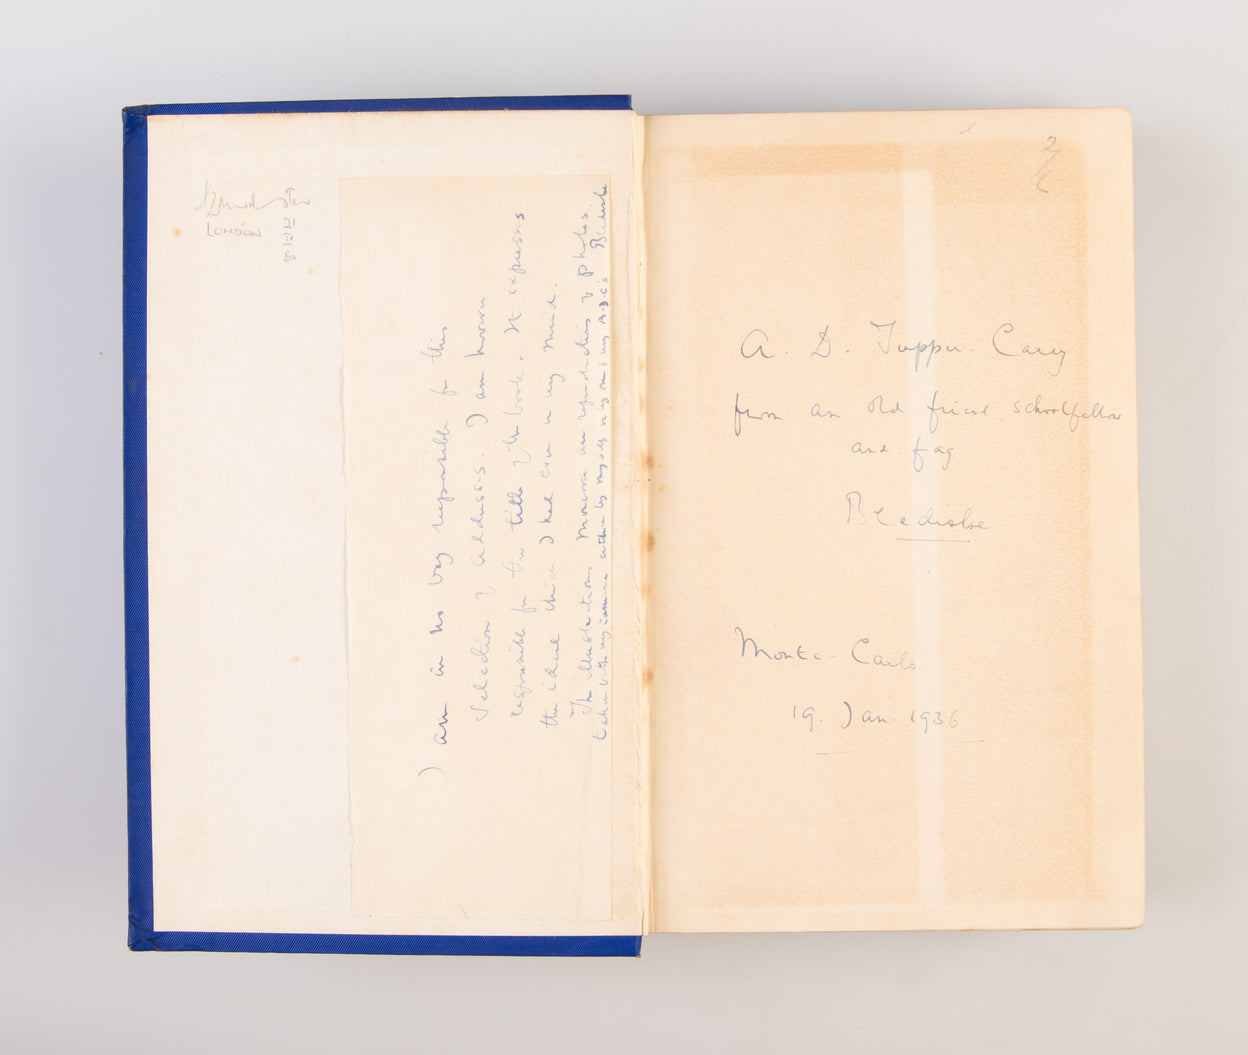 LONDON
I am in no way responsible for this
selection of addresses. I am however
responsible for the title of the book. It expresses
the ideal which I had ever in my mind.
The illustrations moreover are reproductions of photos.
taken with my camera either by myself or by one of my A.D.C's Bledisloe
2/6
A. D. Tupper-Carey
from an old friend, schoolfellow
and fag
Bledisloe
Monte-Carlo
19. Jan. 1936